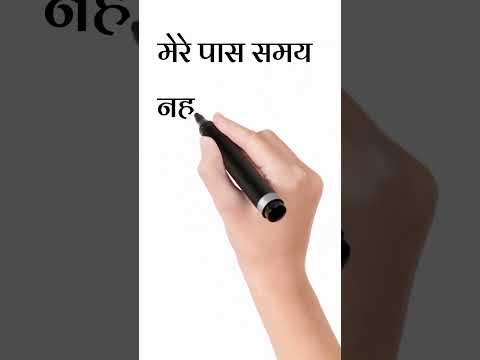 मेरे पास समय
नह